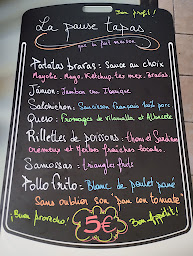 Bon profit!
La pause tapas
par le fait maison
Patatas Bravas: Sauce au choix
Mayolie, Mayo, Ketchup, Tex mex, Bradas
Jámon: Jambon cru Iberique
Salchichon: Saucisson français 100% porc
Queso: Fromages de vilamalla et Albacete
Rillettes de poissons: Thons et Sardines
crémeux et Herbes fraîches locales.
Samossas: Triangles frits
Pollo Frito: Blanc de poulet pané
Sans oublier son pan con tomate
¡Buen provecho!
5€
Bon Appétit!